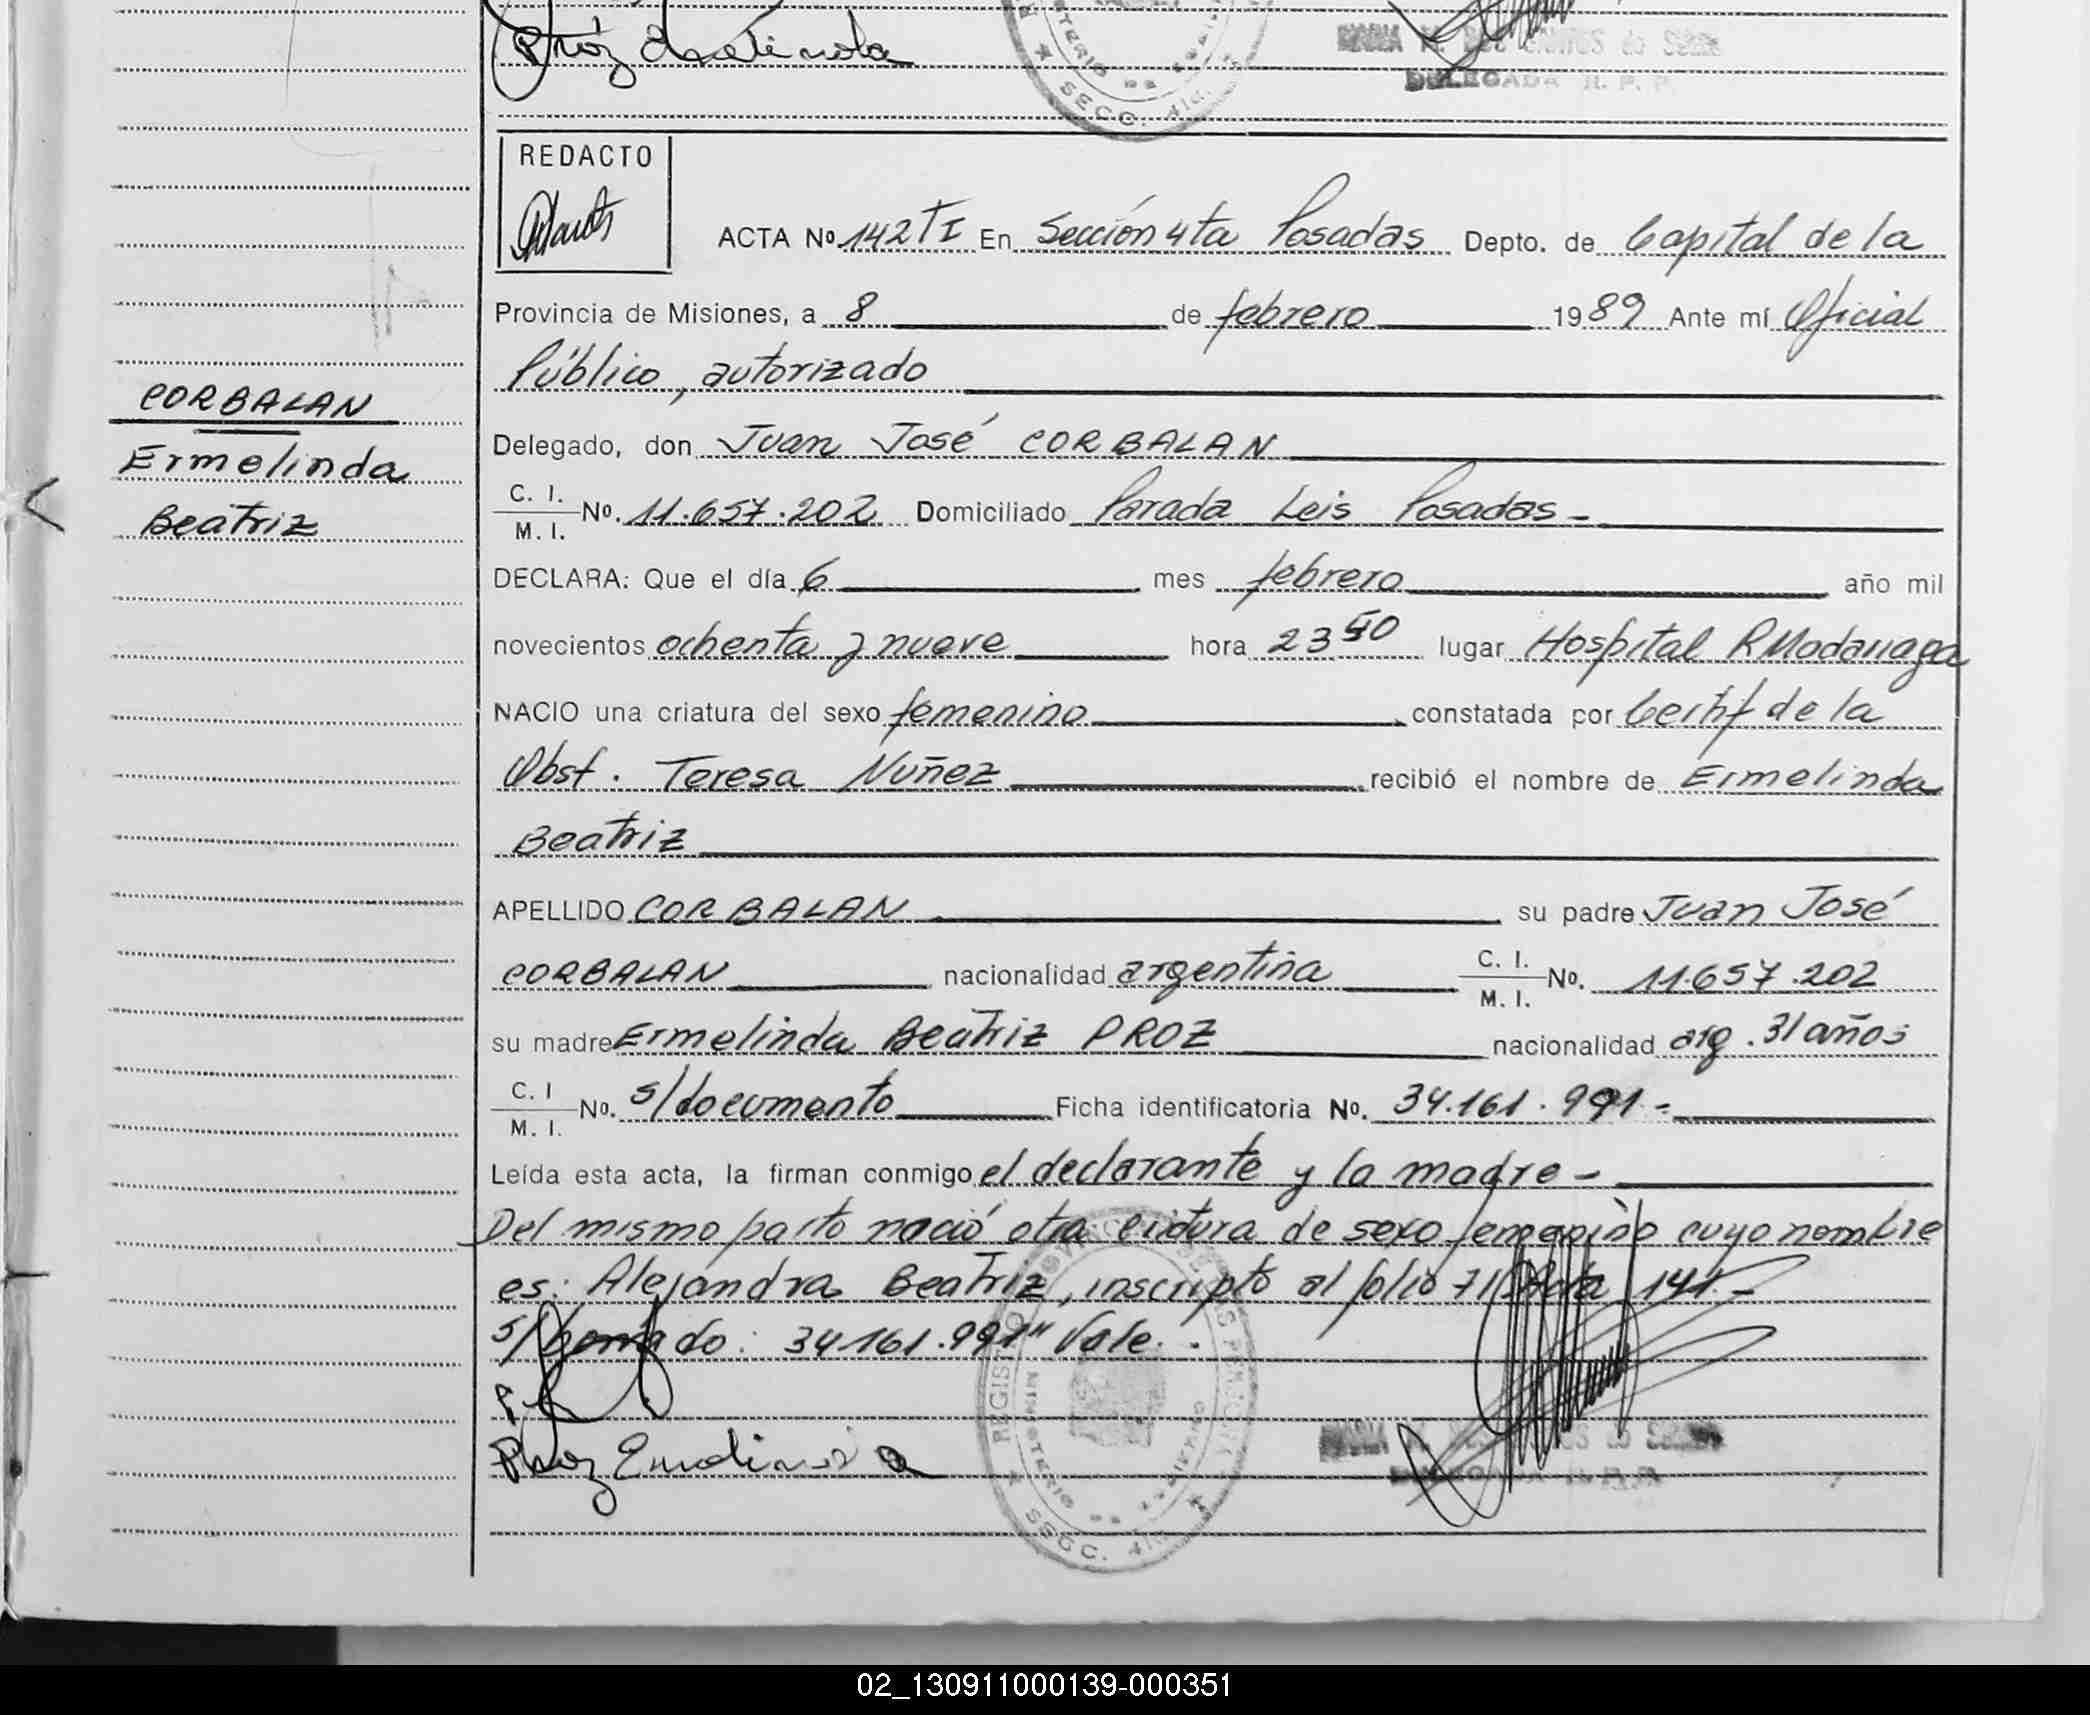 Proz
DELEGADA R. P. P.
SECC. 4ta.
REDACTO
ACTA Nº 142 TI En Sección 4ta Posadas Depto. de Capital de la
Provincia de Misiones, a 8 de febrero 1989 Ante mí Oficial
Público, autorizado
CORBALAN
Ermelinda
Beatriz
Delegado, don Juan José CORBALAN
C. I.
M. I. Nº. 11.657.202 Domiciliado Parada Leis Posadas -
DECLARA: Que el día 6 mes febrero año mil
novecientos ochenta y nueve hora 23 50 lugar Hospital R Madariaga
NACIO una criatura del sexo femenino constatada por Certif de la
Obst. Teresa Nuñez recibió el nombre de Ermelinda
Beatriz
APELLIDO CORBALAN su padre Juan José
CORBALAN nacionalidad argentina C. I.
M. I. Nº. 11.657.202
su madre Ermelinda Beatriz PROZ nacionalidad arg. 31 años
C. I
M. I. Nº. s/documento Ficha identificatoria Nº. 34.161.991.-
Leída esta acta, la firman conmigo el declarante y la madre -
Del mismo parto nació otra criatura de sexo femenino cuyo nombre
es: Alejandra Beatriz, inscripto al folio 71 Acta 141.-
s/borrado: 34.161.991" Vale.
Proz
REGISTRO PROVINCIAL DE LAS PERSONAS
MINISTERIO DE GOBIERNO
SECC. 4ta.
02_130911000139-000351